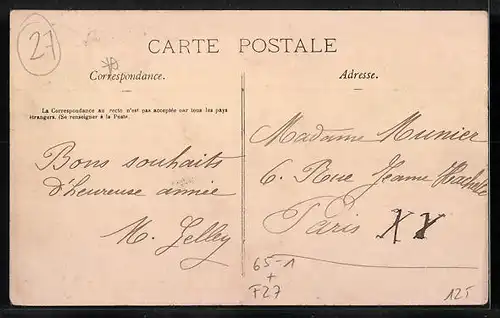 27
CARTE POSTALE
Correspondance.
Adresse.
La Correspondance au recto n'est pas acceptée par tous les pays
étrangers. (Se renseigner à la Poste.
Bons souhaits
d'heureuse année
Madame Munier
6. Rue Jeanne Hachette
Paris XV
65-1
+
F27
12T